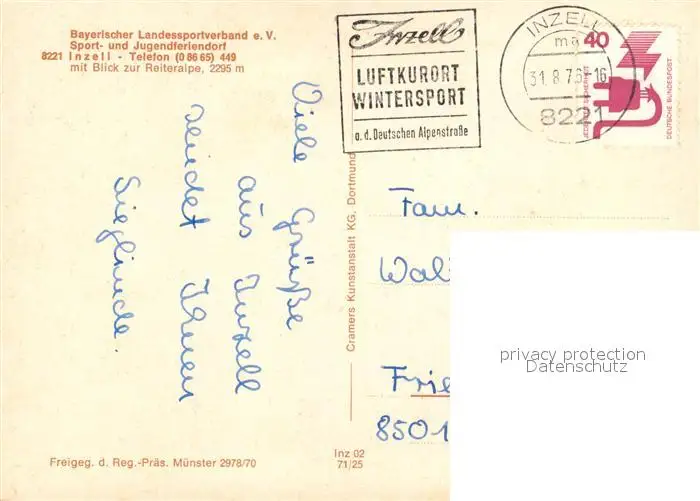 Bayerischer Landessportverband e. V.
Sport- und Jugendferiendorf
8221 Inzell - Telefon (0 86 65) 449
mit Blick zur Reiteralpe, 2295 m
Inzell
LUFTKURORT
WINTERSPORT
a. d. Deutschen Alpenstraße
INZELL
ma
31.8.76-16
8221
40
JEDERZEIT SICHERHEIT
DEUTSCHE BUNDESPOST
Viele Grüße
aus Inzell
sendet Ihnen
Sieglinde.
Cramers Kunstanstalt KG. Dortmund
Fam.
Wal
Frie
8501
privacy protection
Datenschutz
Freigeg. d. Reg.-Präs. Münster 2978/70
Inz 02
71/25